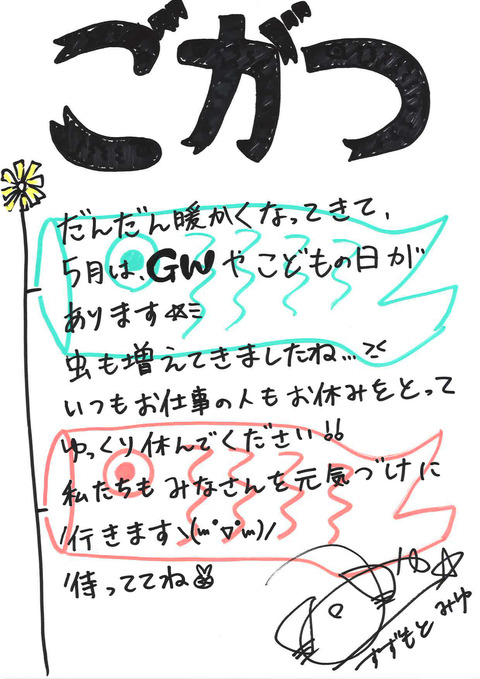 ごがつ
だんだん暖かくなってきて、
5月は、GWやこどもの日が
あります
虫も増えてきましたね...><
いつもお仕事の人もお休みをとって
ゆっくり休んでください!!
私たちもみなさんを元気づけに
行きます\(m°▽°m)/
待っててね✌
みゆ☆
すずもと みゆ